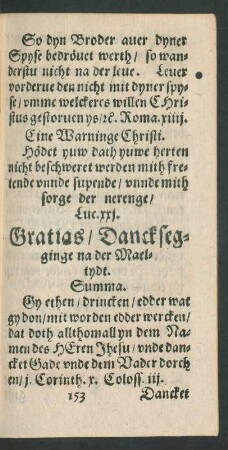 So dyn Broder auer dyner
Spyse bedröuet werth / so wan-
derstu nicht na der leue. Leuer
vorderue den nicht mit dyner spy-
se / vmme welckeres willen CHri-
stus gestoruen ys / ꝛc. Roma. xiiij.
Eine Warninge Christi.
Hödet yuw dath yuwe herten
nicht beschweret werden mith fre-
tende vnnde supende / vnnde mith
sorge der nerenge /
Luc. xxj.
Gratias / Danckseg-
ginge na der Mael-
tydt.
Summa.
Gy ethen / drincken / edder wat
gy don / mit worden edder wercken /
dat doth allthomall yn dem Na-
men des HEren Jhesu / vnde dan-
cket Gade vnde dem Vader dorch
en / j. Corinth. x. Coloss. iij.
153 Dancket